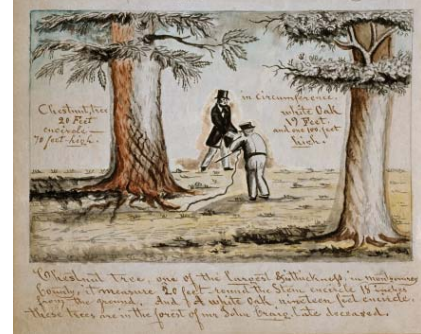 Chestnut, tree
20 Feet
encircle —
70 feet high.
in circumference.
white Oak
19 Feet.
and one 100, feet
high.
Chestnut tree, one of the largest & thickness in montgomery
County, it measure 20 feet round the Stem encircle 18 inches
from the ground. And A white Oak, nineteen feet encircle.
these trees are in the forest of mr John Craig, late deceased.